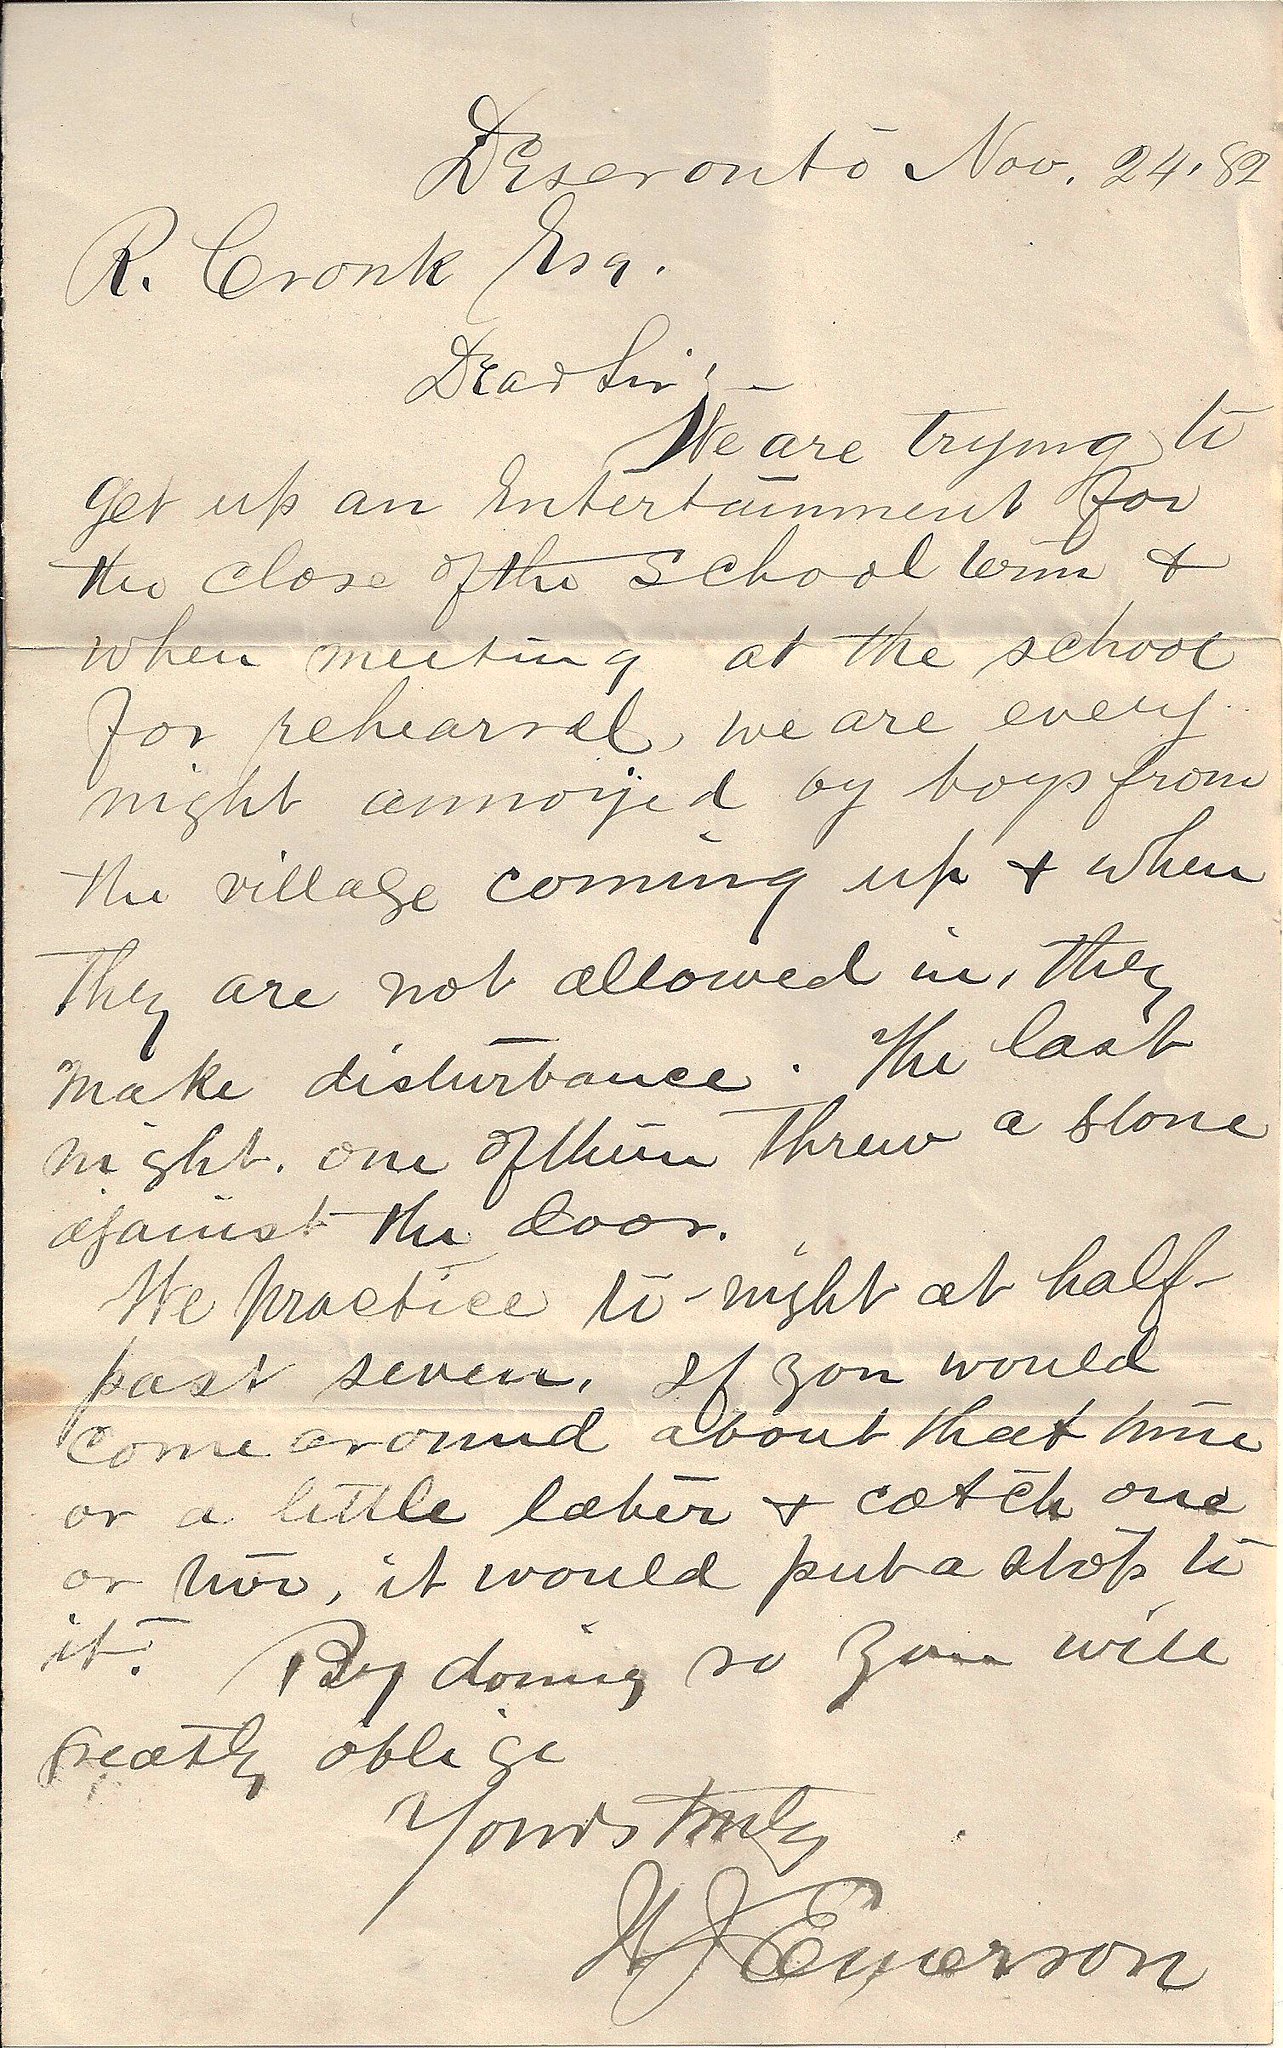 Deseronto Nov. 24, 82
R. Cronk Esq.
Dear Sir,
We are trying to
get up an Entertainment for
the close of the School term &
when meeting at the school
for rehearsal, we are every
night annoyed by boys from
the village coming up & when
they are not allowed in, they
make disturbance. The last
night. one of them threw a stone
against the door.
We practice to-night at half-
past seven. If you would
come around about that time
or a little later & catch one
or two, it would put a stop to
it. By doing so you will
greatly oblige
Yours truly
Emerson